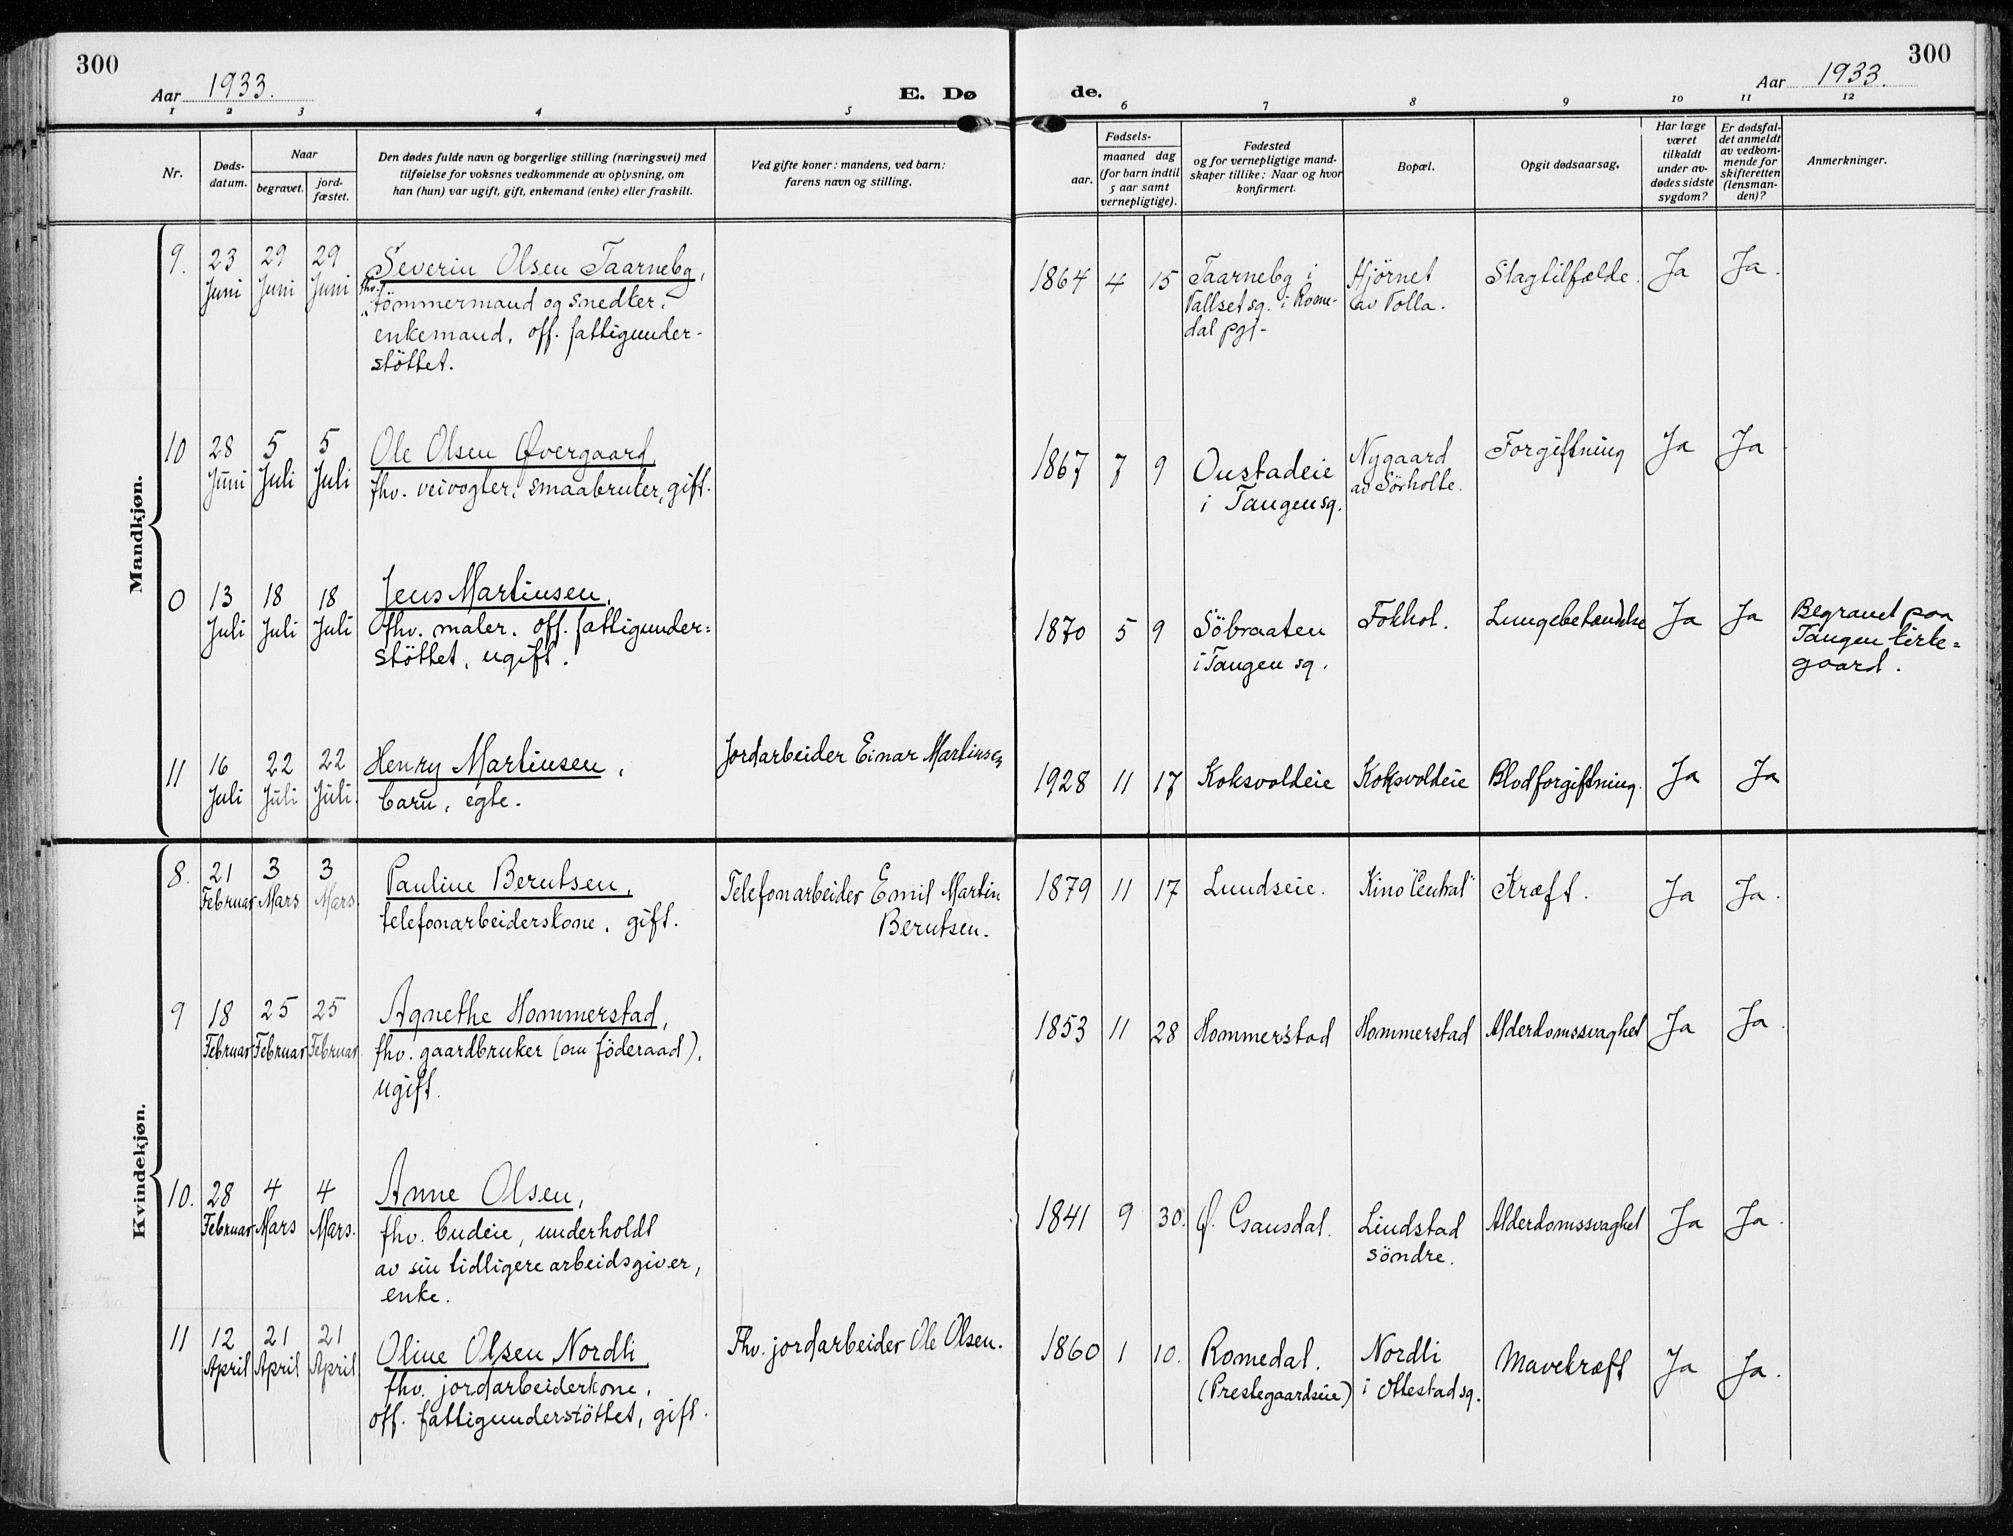 300
Aar 1933.
E. Dø
de.
Aar 1933.
300
1 2 3 4 5
6 7 8 9 10 11 12
Nr.
Døds-
datum.
Naar
begravet.
jord-
fæstet.
Den dødes fulde navn og borgerlige stilling (næringsvei) med
tilføielse for voksnes vedkommende av oplysning, om
han (hun) var ugift, gift, enkemand (enke) eller fraskilt.
Ved gifte koner: mandens, ved barn:
farens navn og stilling.
Fødsels-
aar.
maaned dag
(for barn indtil
5 aar samt
vernepligtige).
Fødested
og for vernepligtige mand-
skaper tillike: Naar og hvor
konfirmert.
Bopæl.
Opgit dødsaarsag.
Har læge
været
tilkaldt
under av-
dødes sidste
sygdom?
Er dødsfal-
det anmeldt
av vedkom-
mende for
skifteretten
(lensman-
den)?
Anmerkninger.
Mandkjøn.
9. 23 29 29 Severin Olsen Taarnebg,
Juni Juni Juni fhv. tömmermand og snedker,
enkemand, off. fattigunder-
stöttet.
1864 4 15 Taarnebg i Hjørnet Slagtilfælde. Ja Ja.
Vallset sg. i Rome- av Tolla.
dal pgj.
10 28 5 5 Ole Olsen Øvergaard,
Juni Juli Juli fhv. veivogter, smaabruker, gift.
1867 7 9 Oustadeie Nygaard Forgiftning Ja Ja
i Tangen sg. av Sörholte.
0 13 18 18 Jens Martinsen,
Juli Juli Juli fhv. maler. off. fattigunder=
stöttet, ugift.
1870 5 9 Söbraaten Fokhol. Lungebetændelse Ja Ja Begravet paa
i Tangen sg. Tangen kirke=
gaard.
11 16 22 22 Henry Martinsen, Jordarbeider Einar Martinsen
Juli Juli Juli. barn, egte.
1928 11 17 Koksvoldeie Koksvoldeie Blodforgiftning. Ja Ja
Kvindekjøn.
8. 21 3 3 Pauline Berntsen, Telefonarbeider Emil Martin
Februar Mars Mars. telefonarbeiderskone, gift. Berntsen.
1879 11 17 Lundseie. Kino "Central" Kræft. Ja Ja.
9 18 25 25 Agnethe Hommerstad,
Februar Februar Februar. fhv. gaardbruker (nu föderaad),
ugift.
1853 11 28 Hommerstad Hommerstad Alderdomssvaghet Ja Ja.
10. 28 4 4 Anne Olsen,
Februar Mars Mars. fhv. budeie, underholdt
av sin tidligere arbeidsgiver,
enke.
1841 9 30. Ø. Gausdal. Lindstad Alderdomssvaghet Ja Ja.
söndre.
11 12 21 21 Oline Olsen Nordli Fhv. jordarbeider Ole Olsen.
April April April fhv. jordarbeiderkone,
off. fattigunderstöttet, gift.
1860 1 10. Romedal. Nordli Mavekræft Ja Ja.
(Prestegaardseie) i Ottestad sg.